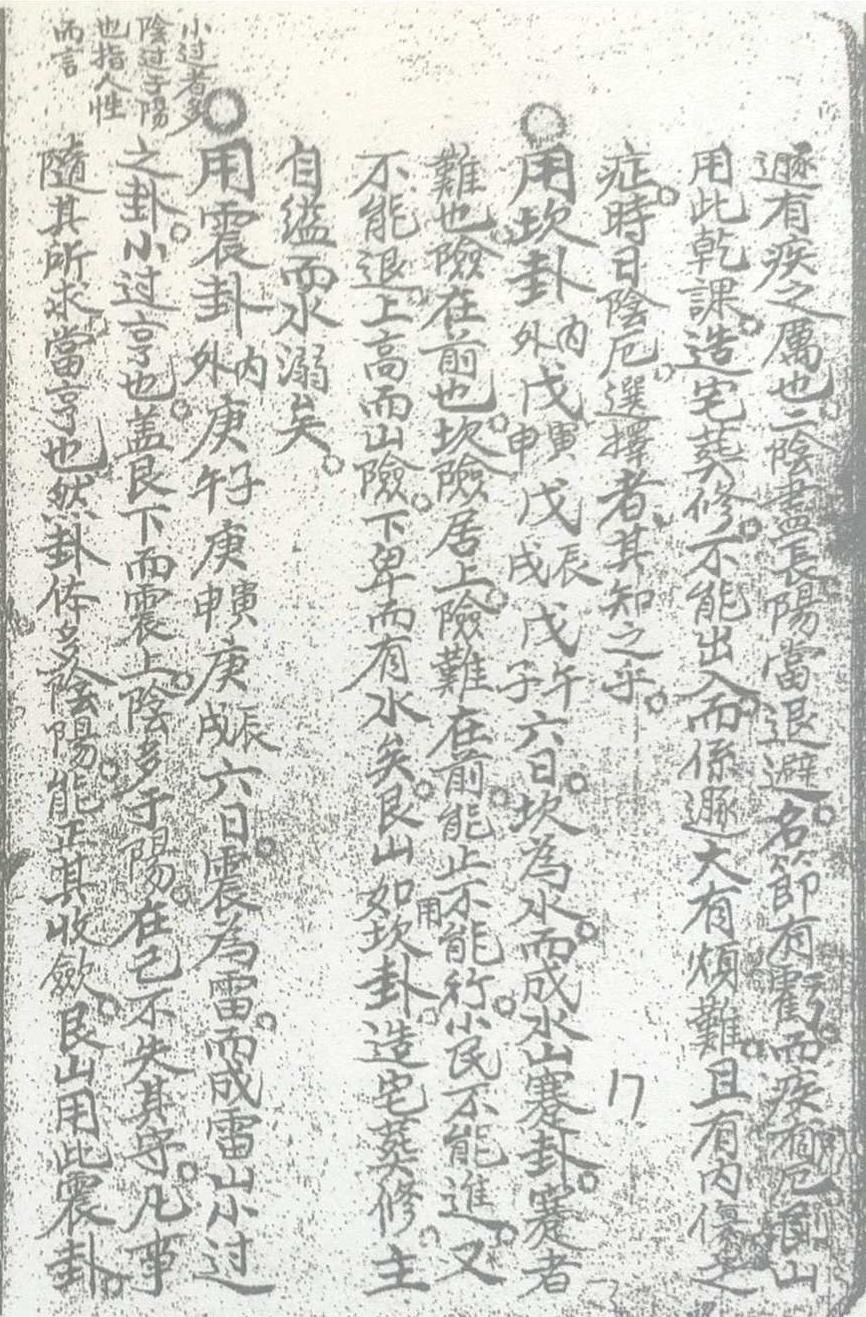 遯有疾之厲也。二陰盡長陽當退避。名節有虧而疾有厄。艮山
用此乾課。造宅葬修。不能出入而係遯大有煩難。且有内傷之
症。時日陰厄。選擇者其知之乎。
○用坎卦内外戊寅申戊辰戌戊午子六日。坎為水。而成水山蹇卦。蹇者
難也。險在前也。坎險居上。險難在前。能止不能行。小民不能進。又
不能退。上高而山險。下卑而有水矣。艮山如用坎卦。造宅葬修。主
自缢而水溺矣。
○用震卦内外庚子午庚寅申庚辰戌六日。震為雷。而成雷山小过
之卦。小过亨也。盖艮下而震上。陰多于陽。在己不失其守。凡事
隨其所求。當亨也。然卦体多陰陽。能正其收歛。艮山用此震卦。
小过者多
陰过于陽
也指人性
而言
17